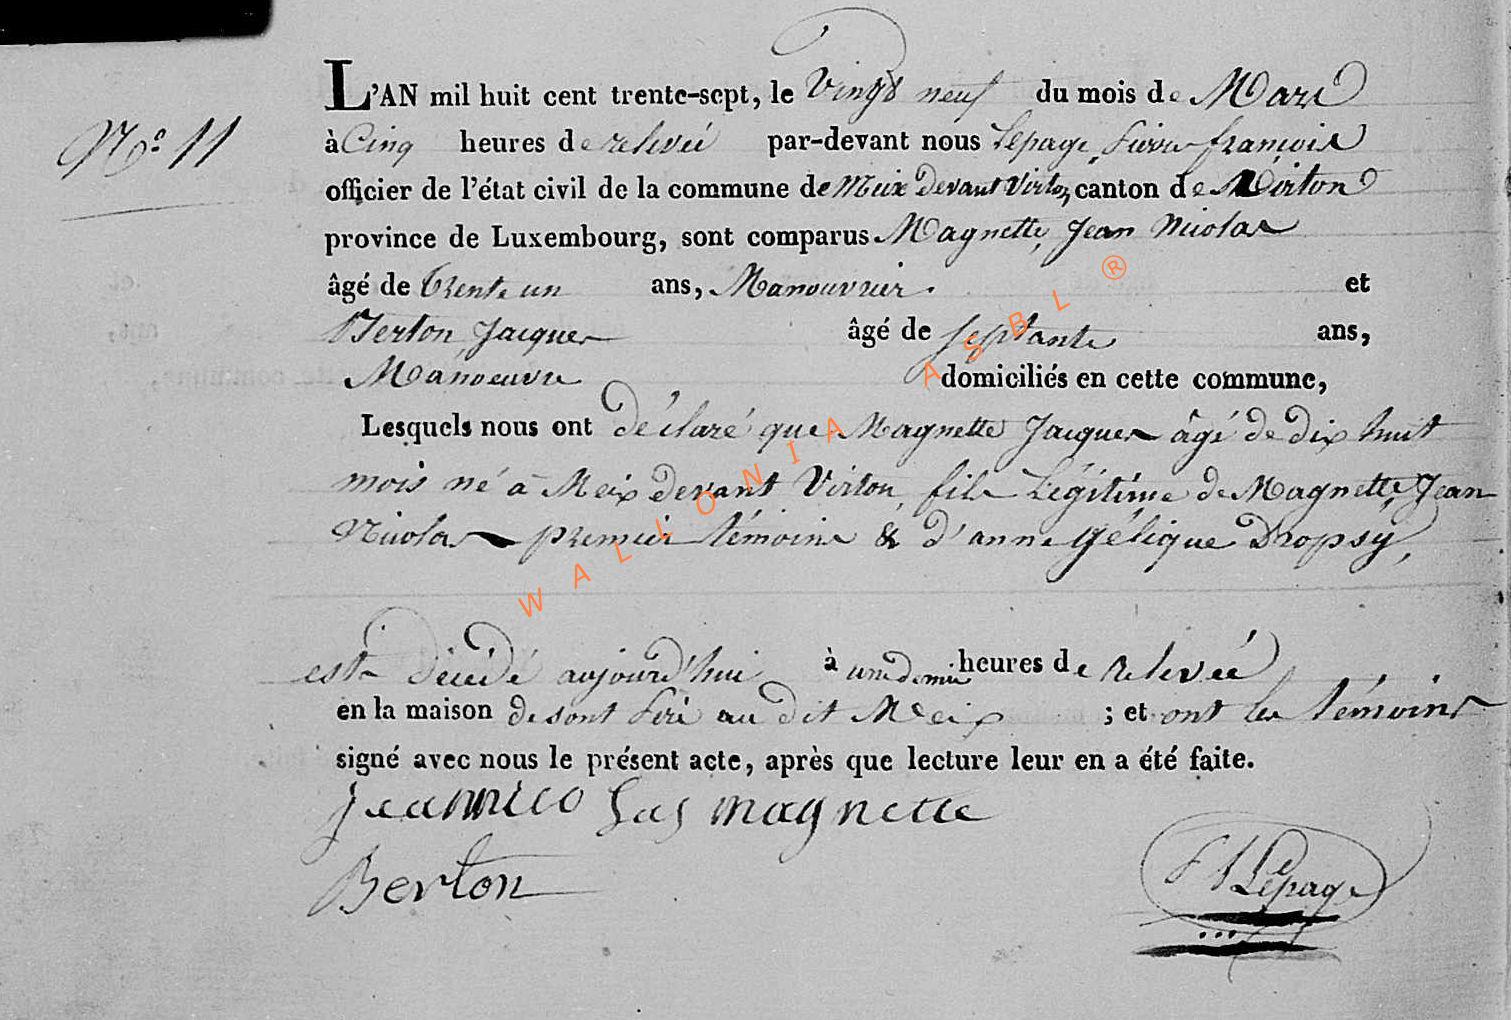 N.° 11
L'AN mil huit cent trente-sept, le Vingt neuf du mois de Mars
à Cinq heures de relevéé par-devant nous Lepage, Pierre françois
officier de l'état civil de la commune de Meix Devant Virton, canton de Virton
province de Luxembourg, sont comparus Magnette, Jean Nicolas
âgé de trente un ans, Manouvrier. et
Berton, Jacques âgé de septante ans,
Manoeuvre domiciliés en cette commune,
Lesquels nous ont déclaré que Magnette Jacques âgé de dix huit
mois né à Meix devant Virton, fils Légitime de Magnette, Jean
Nicolas premier témoins & d'anne gélique Dropsy,
est décédé aujourd'hui à une demie heures de relevéé
en la maison de sont Peré au dit Meix ; et ont les témoins
signé avec nous le présent acte, après que lecture leur en a été faite.
Jeannico las magnette
Berton
Lepage
WALLONIA ASBL ®